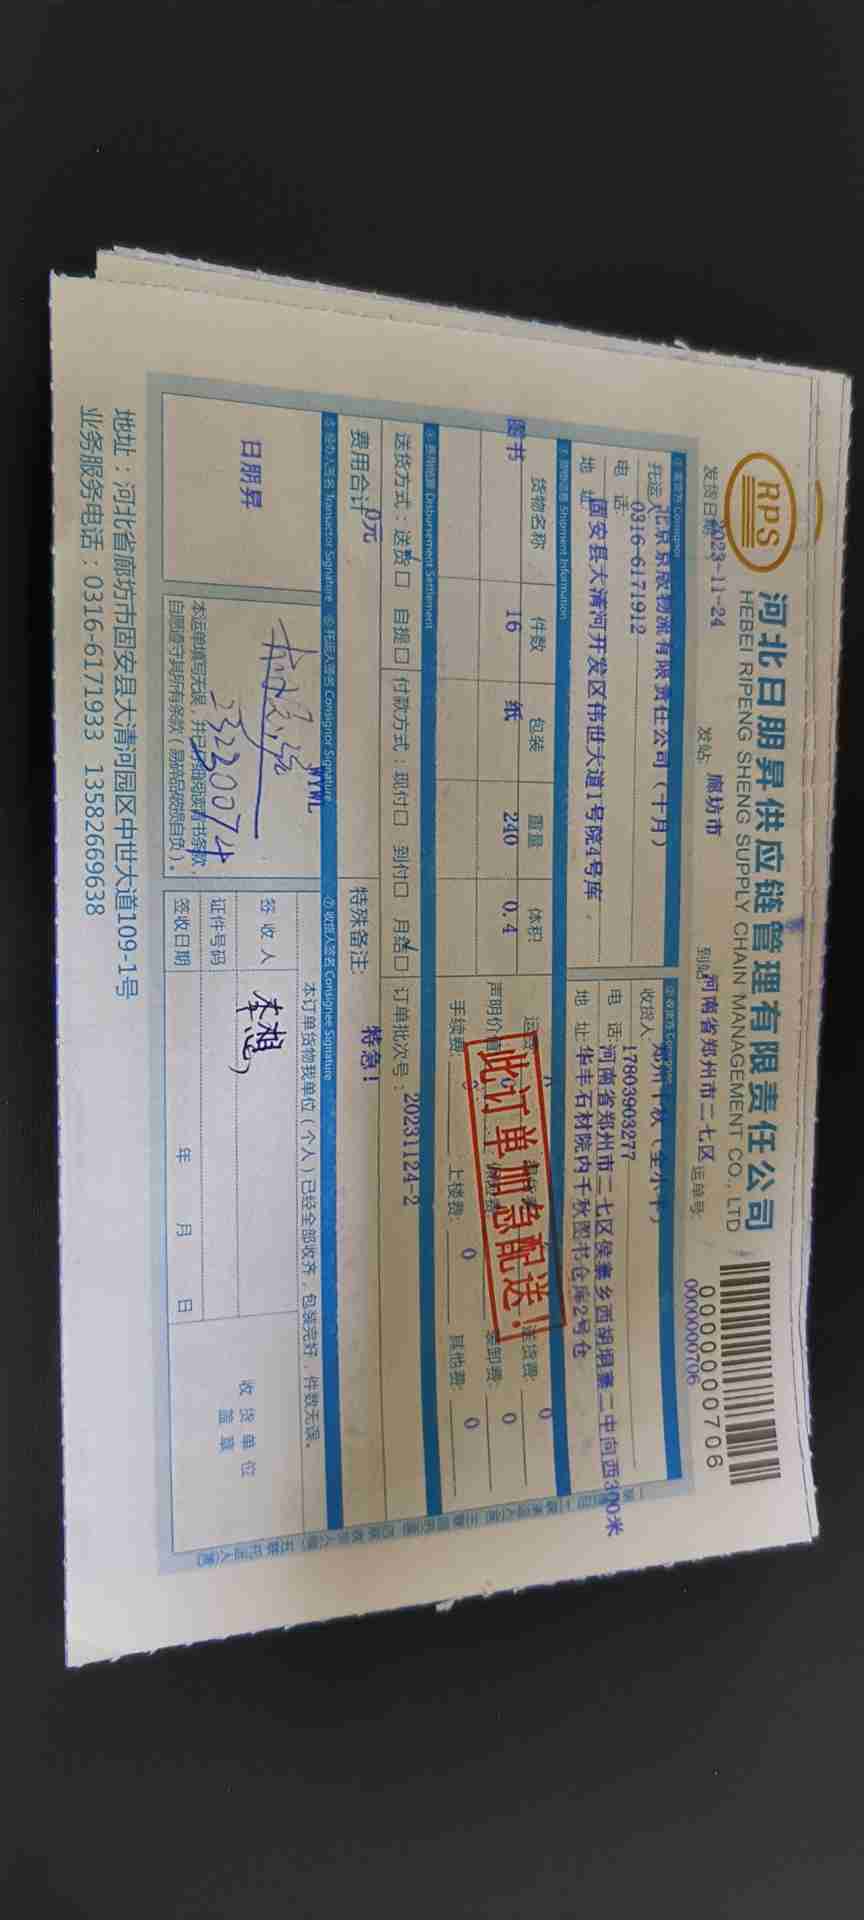 RPS
河北日朋昇供应链管理有限责任公司
HEBEI RIPENG SHENG SUPPLY CHAIN MANAGEMENT CO., LTD
0000000706
0000000706
发货日期 2023-11-24 发站: 廊坊市 到站 河南省郑州市二七区 运单号:
①发货方 Consignor ②收货方 Consignee
托运人 北京京欣物流有限责任公司（十月） 收货人 郑州千秋（全小平）
电 话: 0316-6171912 电 话: 17803903277
地 址 固安县大清河开发区伟世大道1号院4号库 地 址 河南省郑州市二七区侯寨乡西胡垌寨二中向西300米
华丰石材院内千秋图书仓库2号仓
③货物信息 Shipment Information
货物名称 件数 包装 重量 体积 运费: 送货费: 0
图书 16 纸 240 0.4 声明价值 保险费: 装卸费: 0
手续费: 上楼费: 0 其他费: 0
此订单加急配送!
④费用结算 Disbursement Settlement
送货方式: 送货口 自提口 付款方式: 现付口 到付口 月结口 订单批次号: 20231124-2
费用合计 0元 特殊备注: 特急!
⑤经办人签名 Transactor Signature ⑥托运人签名 Consignor Signature ⑦收货人签名 Consignee Signature
日朋昇
WYWL
23230074
本运单填写无误，并已仔细阅读背书条款，
自愿遵守其所有条款（易碎品破损自负）。
本订单货物我单位（个人）已经全部收齐，包装完好，件数无误。
签 收 人 李想
证件号码
签收日期 年 月 日
收 货 单 位
盖 章
地址：河北省廊坊市固安县大清河园区中世大道109-1号
业务服务电话：0316-6171933 13582669638